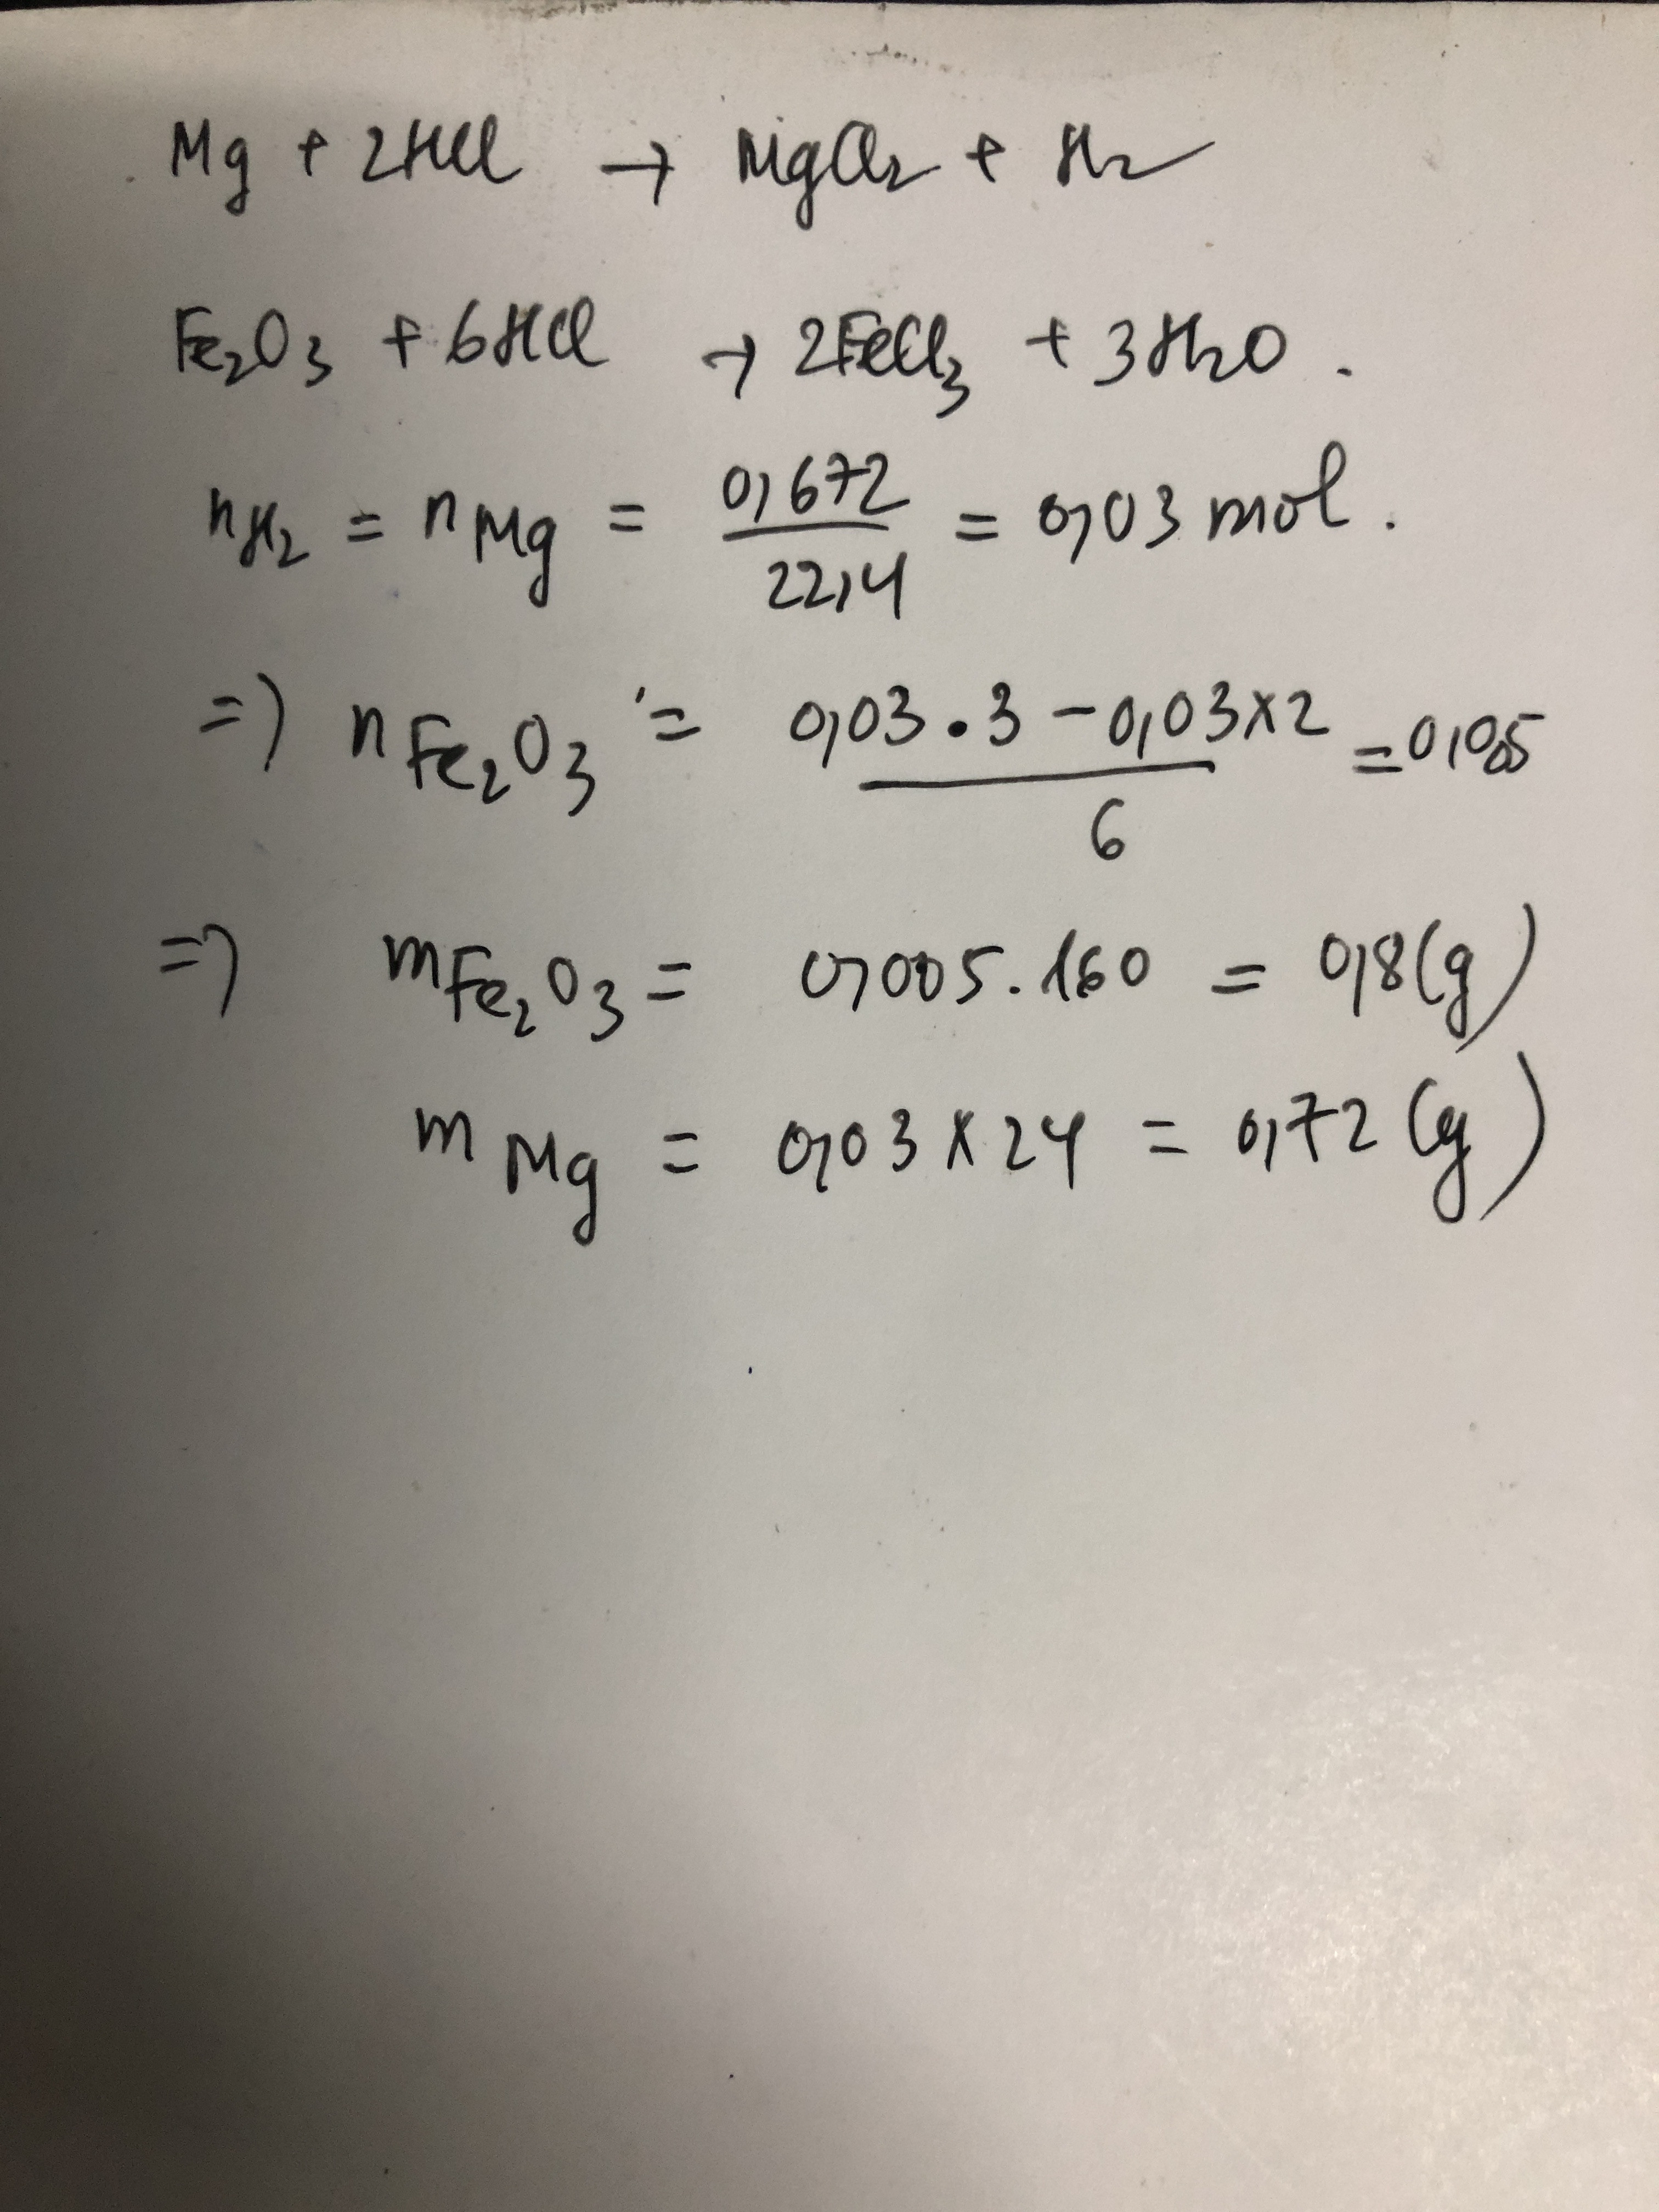 Mg + 2HCl → MgCl₂ + H₂
Fe₂O₃ + 6HCl → 2FeCl₃ + 3H₂O.
nH₂ = nMg = 0,672 / 22,4 = 0,03 mol.
=> nFe₂O₃ = 0,03 . 3 - 0,03 x 2 / 6 = 0,005
=> mFe₂O₃ = 0,005 . 160 = 0,8 (g)
mMg = 0,03 x 24 = 0,72 (g)